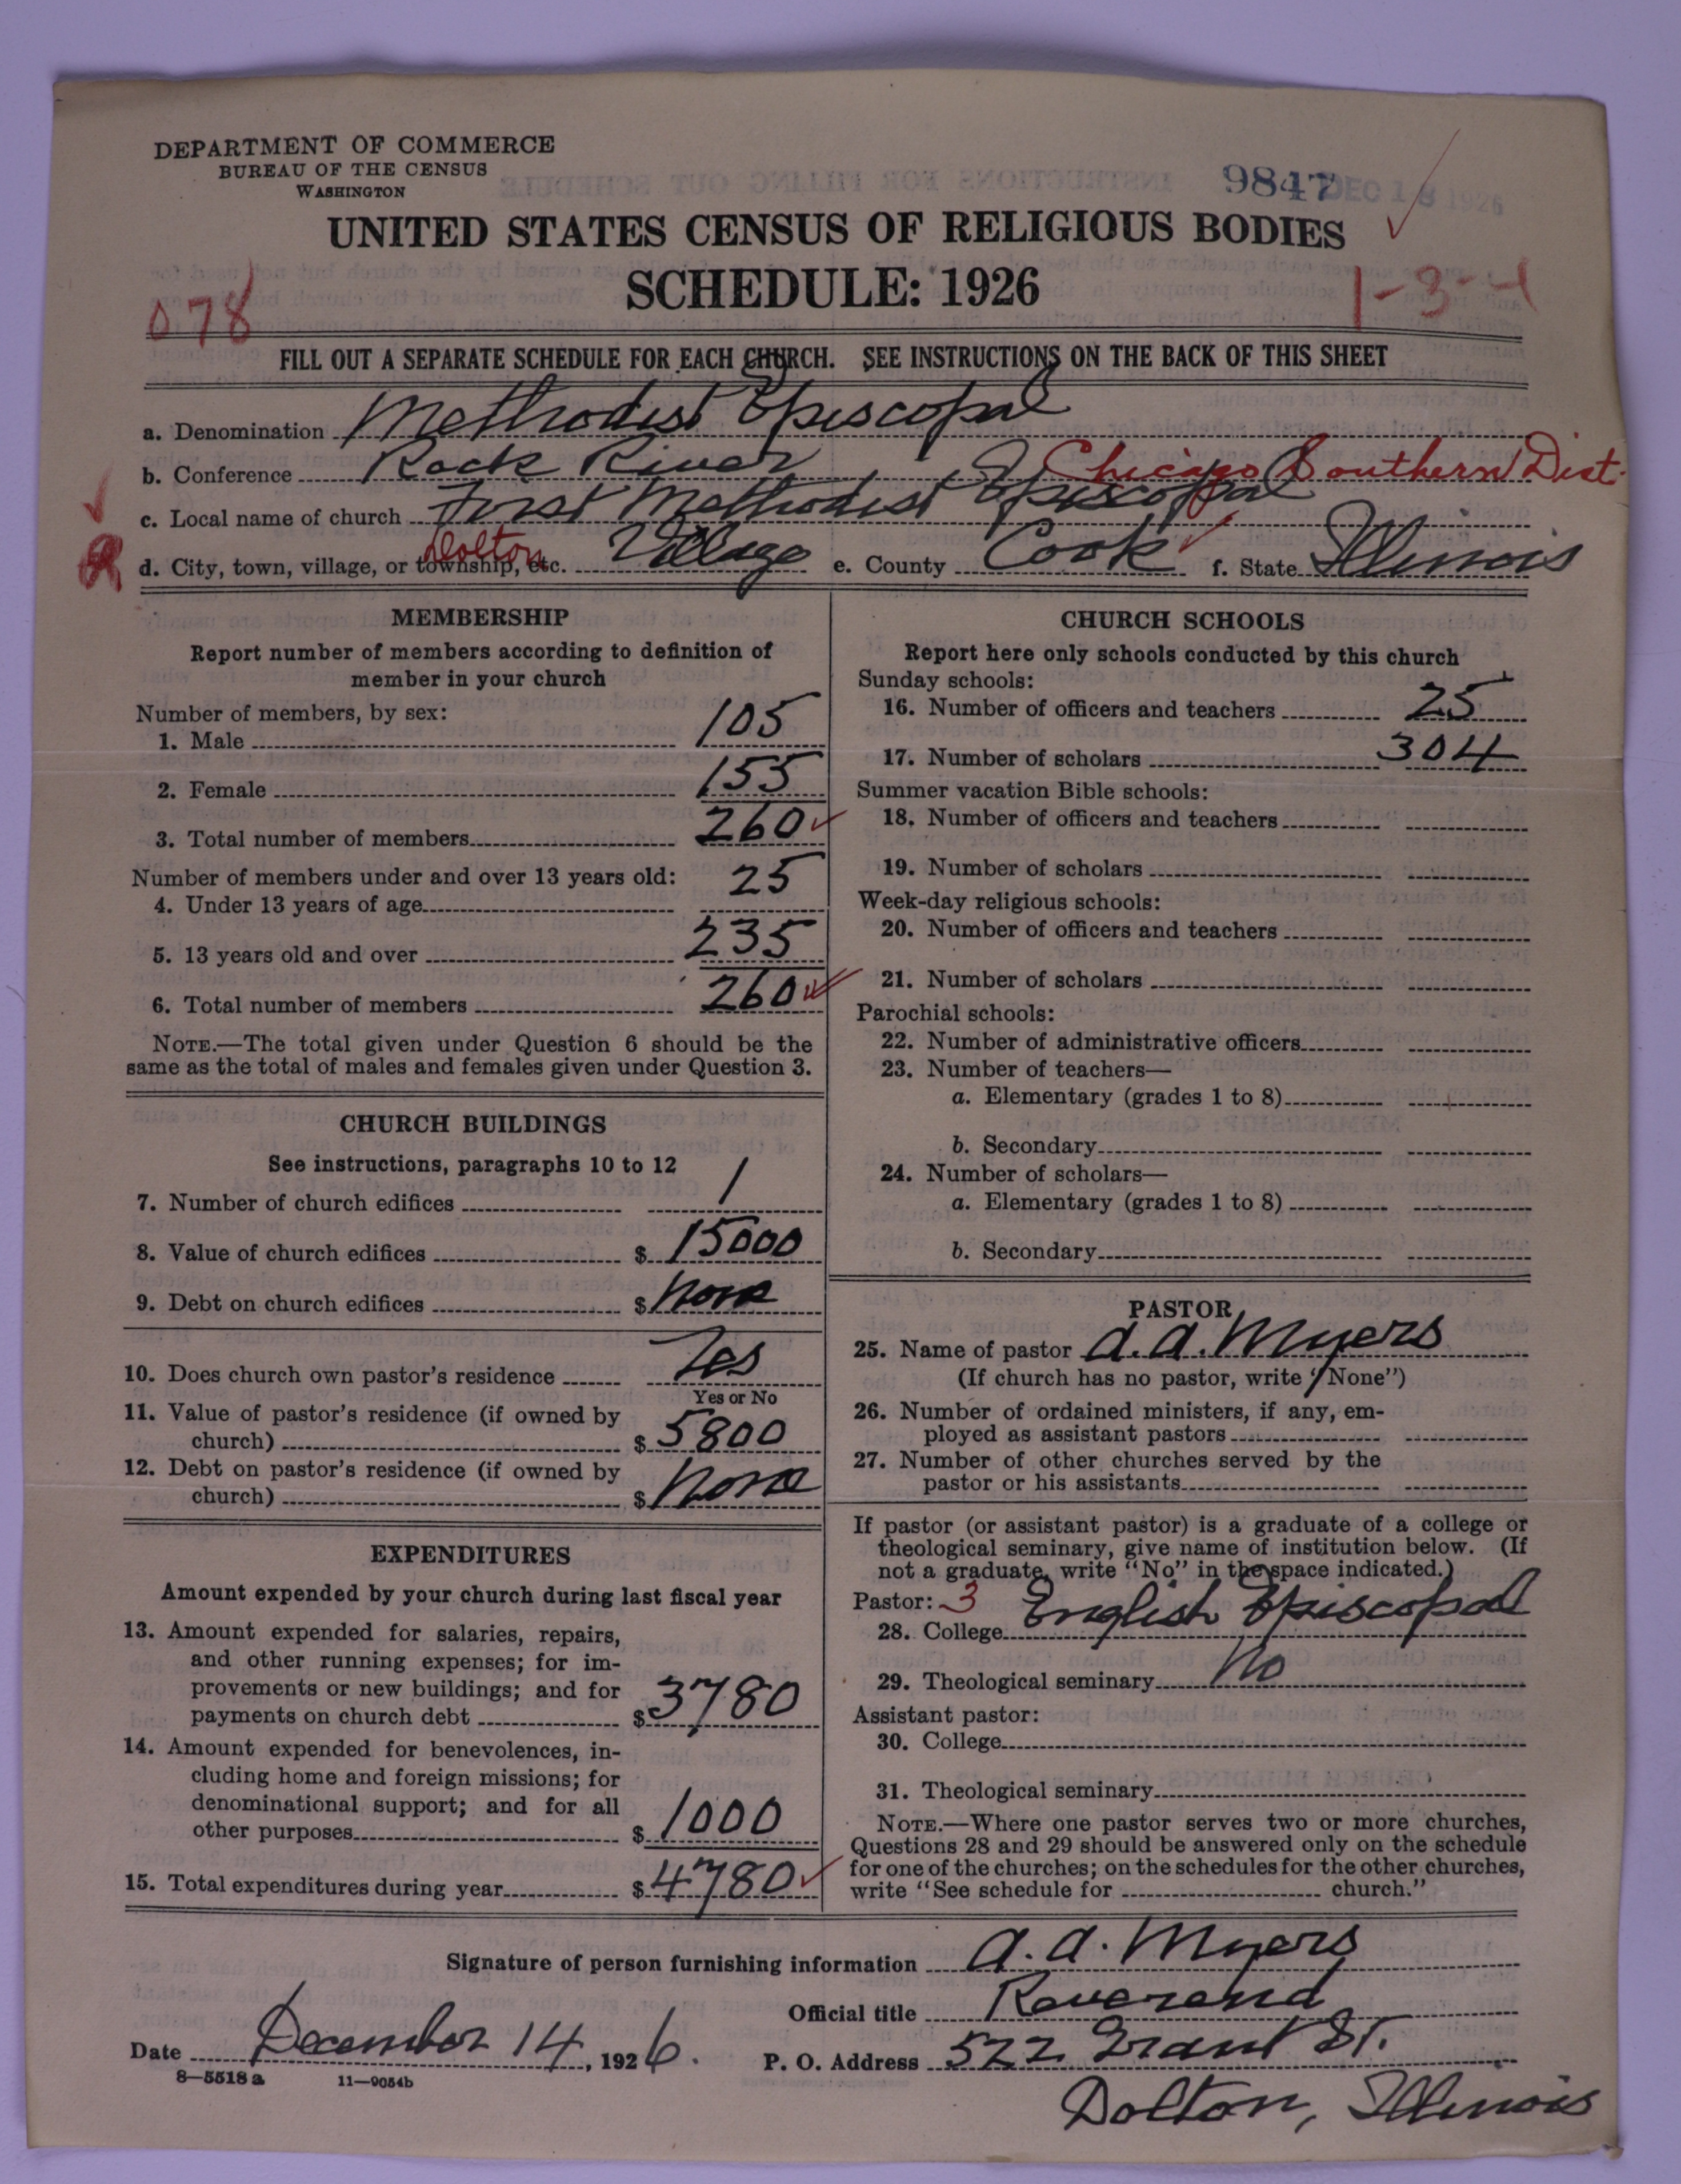 DEPARTMENT OF COMMERCE
BUREAU OF THE CENSUS
WASHINGTON
9847 DEC 18 1926
UNITED STATES CENSUS OF RELIGIOUS BODIES
SCHEDULE: 1926
078
1-3-4
FILL OUT A SEPARATE SCHEDULE FOR EACH CHURCH. SEE INSTRUCTIONS ON THE BACK OF THIS SHEET
a. Denomination Methodist Episcopal
b. Conference Rock River, Chicago Southern Dist.
c. Local name of church First Methodist Episcopal
d. City, town, village, or township, etc. Dolton Village e. County Cook f. State Illinois
MEMBERSHIP
Report number of members according to definition of
member in your church
Number of members, by sex:
1. Male 105
2. Female 155
3. Total number of members 260
Number of members under and over 13 years old:
4. Under 13 years of age 25
5. 13 years old and over 235
6. Total number of members 260
NOTE.—The total given under Question 6 should be the
same as the total of males and females given under Question 3.
CHURCH BUILDINGS
See instructions, paragraphs 10 to 12
7. Number of church edifices 1
8. Value of church edifices $ 15000
9. Debt on church edifices $ None
10. Does church own pastor's residence Yes
Yes or No
11. Value of pastor's residence (if owned by
church) $ 5800
12. Debt on pastor's residence (if owned by
church) $ None
EXPENDITURES
Amount expended by your church during last fiscal year
13. Amount expended for salaries, repairs,
and other running expenses; for im-
provements or new buildings; and for
payments on church debt $ 3780
14. Amount expended for benevolences, in-
cluding home and foreign missions; for
denominational support; and for all
other purposes $ 1000
15. Total expenditures during year $ 4780
CHURCH SCHOOLS
Report here only schools conducted by this church
Sunday schools:
16. Number of officers and teachers 25
17. Number of scholars 304
Summer vacation Bible schools:
18. Number of officers and teachers
19. Number of scholars
Week-day religious schools:
20. Number of officers and teachers
21. Number of scholars
Parochial schools:
22. Number of administrative officers
23. Number of teachers—
a. Elementary (grades 1 to 8)
b. Secondary
24. Number of scholars—
a. Elementary (grades 1 to 8)
b. Secondary
PASTOR
25. Name of pastor A. A. Myers
(If church has no pastor, write "None")
26. Number of ordained ministers, if any, em-
ployed as assistant pastors
27. Number of other churches served by the
pastor or his assistants
If pastor (or assistant pastor) is a graduate of a college or
theological seminary, give name of institution below. (If
not a graduate, write "No" in the space indicated.)
Pastor: 3
28. College English Episcopal
29. Theological seminary No
Assistant pastor:
30. College
31. Theological seminary
NOTE.—Where one pastor serves two or more churches,
Questions 28 and 29 should be answered only on the schedule
for one of the churches; on the schedules for the other churches,
write "See schedule for church."
Signature of person furnishing information A. A. Myers
Official title Reverend
Date December 14, 1926. P. O. Address 522 Grant St.
8—5518 a 11—9054b
Dolton, Illinois